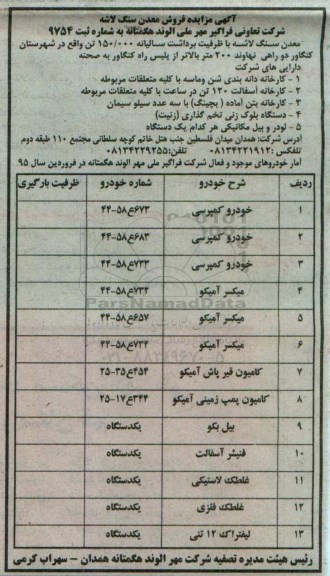 آگهی مزایده فروش معدن سنگ لاشه
شرکت تعاونی فراگیر مهر ملی الوند هگمتانه به شماره ثبت ۹۷۵۴
معدن سنگ لاشه با ظرفیت برداشت سالیانه ۱۵۰/۰۰۰ تن واقع در شهرستان
کنگاور دو راهی نهاوند ۲۰۰ متر بالاتر از پلیس راه کنگاور به صحنه
دارایی های شرکت
۱ - کارخانه دانه بندی شن وماسه با کلیه متعلقات مربوطه
۲ - کارخانه آسفالت ۱۲۰ تن در ساعت با کلیه متعلقات مربوطه
۳ - کارخانه بتن آماده ( بچینگ) با سه عدد سیلو سیمان
۴ - دستگاه بلوک زنی تخم گذاری (زنیت)
۵ - لودر و بیل مکانیکی هر کدام یک دستگاه
آدرس شرکت: همدان میدان فلسطین جنب هتل خاتم کوچه سلطانی مجتمع ۱۱۰ طبقه دوم
تلفکس :۰۸۱۳۴۲۲۱۹۱۲ تلفن:۰۸۱۳۴۲۲۹۲۵۵
آمار خودروهای موجود و فعال شرکت فراگیر ملی مهر الوند هگمتانه در فروردین سال ۹۵
ردیف شرح خودرو شماره خودرو ظرفیت بارگیری
۱ خودرو کمپرسی ۶۷۳ع۵۸-۴۴
۲ خودرو کمپرسی ۶۸۳ع۵۸-۴۴
۳ خودرو کمپرسی ۷۳۳ع۵۸-۴۴
۴ میکسر آمیکو ۷۳۲ع۵۸-۴۴
۵ میکسر آمیکو ۶۵۷ع۵۸-۴۴
۶ میکسر آمیکو ۷۳۴ع۵۸-۴۴
۷ کامیون قیر پاش آمیکو ۴۵۴ع۳۵-۲۵
۸ کامیون پمپ زمینی آمیکو ۳۴۴ع۱۷-۲۵
۹ بیل بکو یکدستگاه
۱۰ فنیشر آسفالت یکدستگاه
۱۱ غلطک لاستیکی یکدستگاه
۱۲ غلطک فلزی یکدستگاه
۱۳ لیفتراک ۱۲ تنی یکدستگاه
رئیس هیئت مدیره تصفیه شرکت مهر الوند هگمتانه همدان - سهراب کرمی
ParsNamadData